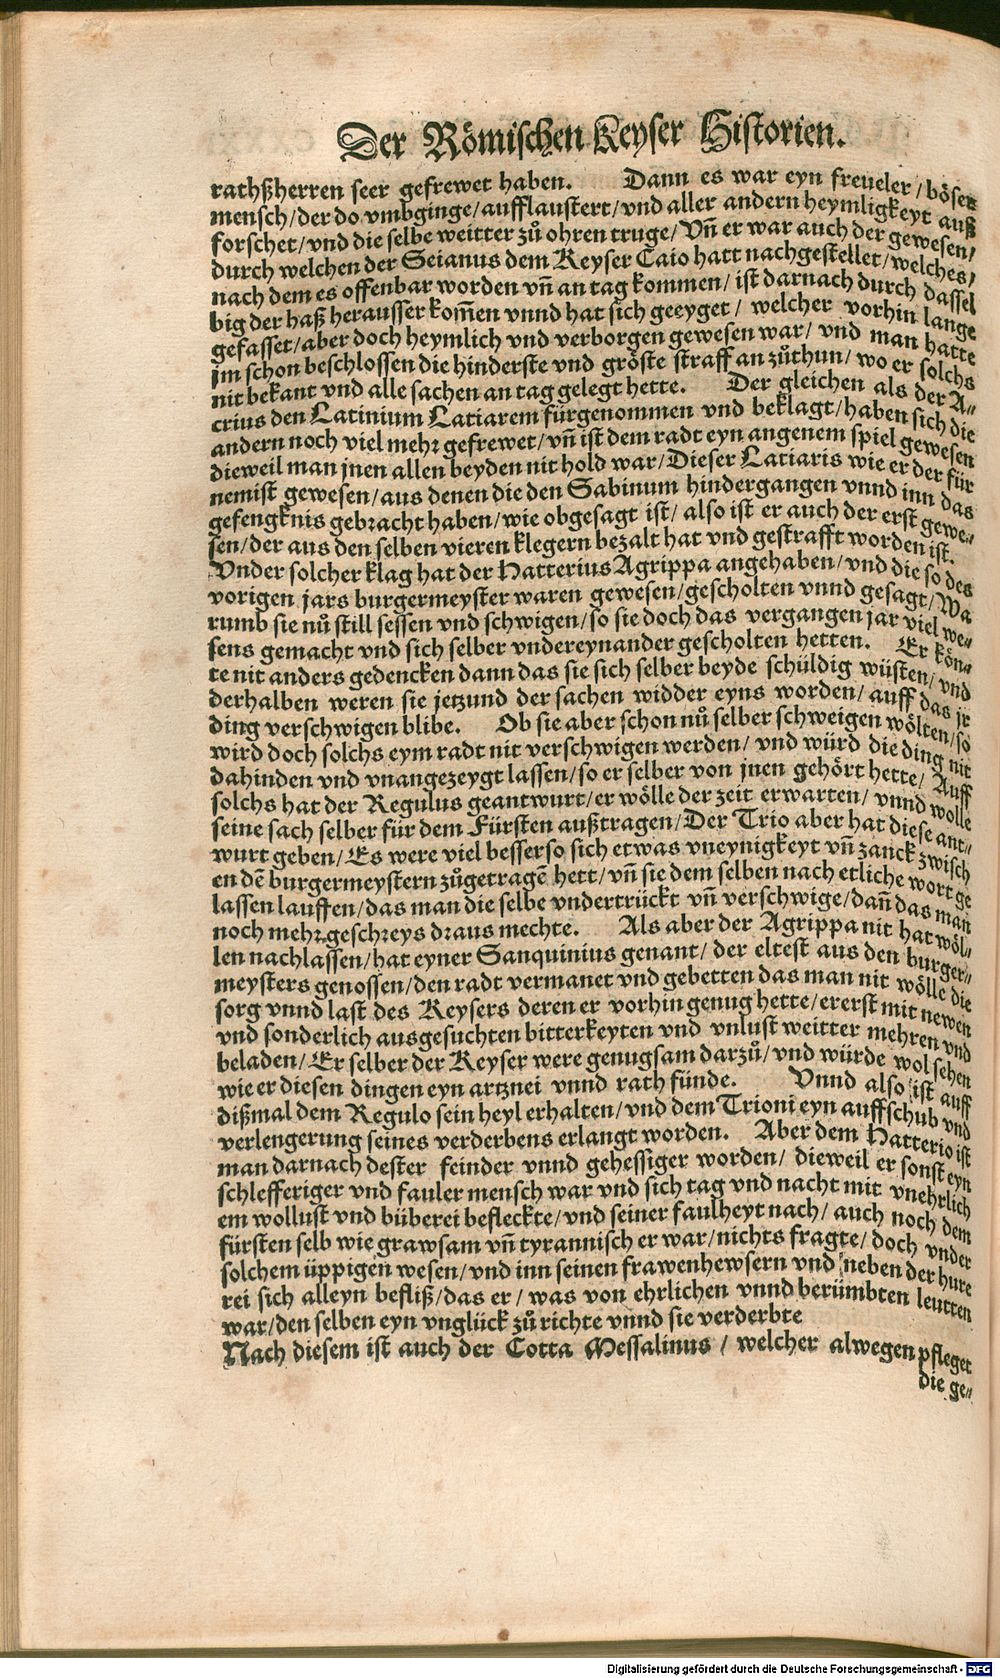 Der Römischen Keyser Historien.
rathßherren seer gefrewet haben. Dann es war eyn freueler/ böser
mensch/der do vmbginge/aufflaustert/vnd aller andern heymligkeyt auß
forschet/vnd die selbe weitter zů ohren truge/ Vñ er war auch der gewesen/
durch welchen der Seianus dem Keyser Caio hatt nachgestellet/welches/
nach dem es offenbar worden vñ an tag kommen/ ist darnach durch dassel
big der haß herausser kom̃en vnnd hat sich geeyget/ welcher vorhin lange
gefasset/aber doch heymlich vnd verborgen gewesen war/ vnd man hatte
jm schon beschlossen die hinderste vnd gröste straff an zůthun/ wo er solchs
nit bekant vnd alle sachen an tag gelegt hette. Der gleichen als der A⸗
crius den Latinium Latiarem fürgenommen vnd beklagt/haben sich die
andern noch viel mehr gefrewet/vñ ist dem radt eyn angenem spiel gewesen
dieweil man jnen allen beyden nit hold war/Dieser Latiaris wie er der für
nemist gewesen/aus denen die den Sabinum hindergangen vnnd inn das
gefengknis gebracht haben/wie obgesagt ist/ also ist er auch der erst gewe⸗
sen/der aus den selben vieren klegern bezalt hat vnd gestrafft worden ist.
Vnder solcher klag hat der Hatterius Agrippa angehaben/vnd die so des
vorigen jars burgermeyster waren gewesen/gescholten vnnd gesagt/Wa
rumb sie nů still sessen vnd schwigen/so sie doch das vergangen jar viel we⸗
sens gemacht vnd sich selber vndereynander gescholten hetten. Er kön⸗
te nit anders gedencken dann das sie sich selber beyde schüldig wüsten/vnd
derhalben weren sie jetzund der sachen widder eyns worden/ auff das jr
ding verschwigen blibe. Ob sie aber schon nů selber schweigen wölten/so
wird doch solchs eym radt nit verschwigen werden/ vnd würd die ding nit
dahinden vnd vnangezeygt lassen/so er selber von jnen gehört hette/ Auff
solchs hat der Regulus geantwurt/er wölle der zeit erwarten/ vnnd wolle
seine sach selber für dem Fürsten außtragen/Der Trio aber hat diese ant⸗
wurt geben/Es were viel besser so sich etwas vneynigkeyt vñ zanck zwisch
en dẽ burgermeystern zůgetragẽ hett/vñ sie dem selben nach etliche wort ge
lassen lauffen/das man die selbe vndertrückt vñ verschwige/dañ das man
noch mehr geschreys draus mechte. Als aber der Agrippa nit hat wöl⸗
len nachlassen/hat eyner Sanquinius genant/ der eltest aus den burger⸗
meysters genossen/den radt vermanet vnd gebetten das man nit wölle die
sorg vnnd last des Keysers deren er vorhin genug hette/ererst mit newen
vnd sonderlich ausgesuchten bitterkeyten vnd vnlust weitter mehren vnd
beladen/Er selber der Keyser were genugsam darzů/vnd würde wol sehen
wie er diesen dingen eyn artznei vnnd rath fünde. Vnnd also ist auff
dißmal dem Regulo sein heyl erhalten/vnd dem Trioni eyn auffschub vnd
verlengerung seines verderbens erlangt worden. Aber dem Hatterio ist
man darnach dester feinder vnnd gehessiger worden/ dieweil er sonst eyn
schlefferiger vnd fauler mensch war vnd sich tag vnd nacht mit vnehrlich
em wollust vnd büberei befleckte/vnd seiner faulheyt nach/ auch noch dem
fürsten selb wie grawsam vñ tyrannisch er war/nichts fragte/ doch vnder
solchem üppigen wesen/vnd inn seinen frawenhewsern vnd neben der hure
rei sich alleyn befliß/das er/ was von ehrlichen vnnd berümbten leutten
war/den selben eyn vnglück zů richte vnnd sie verderbte
Nach diesem ist auch der Cotta Messalinus / welcher alwegen pfleget
die ge⸗
Digitalisierung gefördert durch die Deutsche Forschungsgemeinschaft - DFG